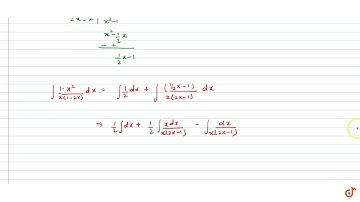 2x²-x | x²-1
x²-½x
- +
½x-1
∫ (1-x²)/(x(1-2x)) dx = ∫ ½ dx + ∫ (½x-1)/(x(2x-1)) dx
⇒ ½ ∫dx + ½ ∫ xdx/(x(2x-1)) - ∫ dx/(x(2x-1))